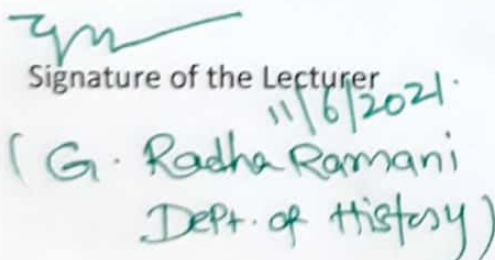 Signature of the Lecturer
11/6/2021.
(G. Radha Ramani
Dept. of History)